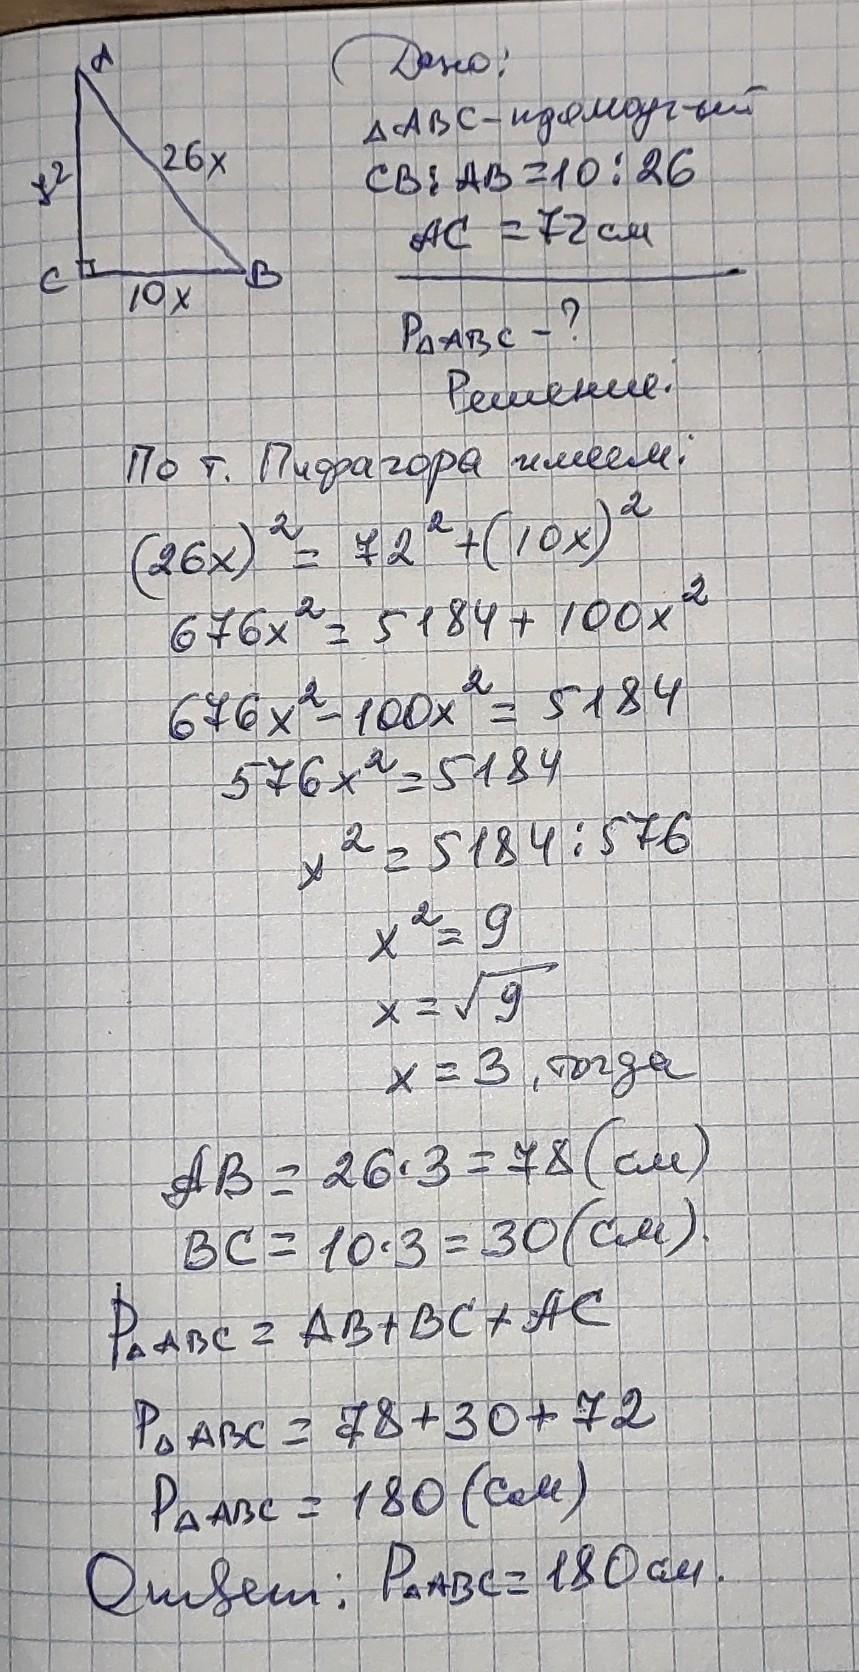 A
26x
72
C
B
10x
Дано:
△ABC - прямоуг-ый
CB : AB = 10 : 26
AC = 72 см
P△ABC - ?
Решение:
По т. Пифагора имеем:
(26x)² = 72² + (10x)²
676x² = 5184 + 100x²
676x² - 100x² = 5184
576x² = 5184
x² = 5184 : 576
x² = 9
x = √9
x = 3, тогда
AB = 26·3 = 78 (см)
BC = 10·3 = 30 (см).
P△ABC = AB + BC + AC
P△ABC = 78 + 30 + 72
P△ABC = 180 (см)
Ответ: P△ABC = 180 см.